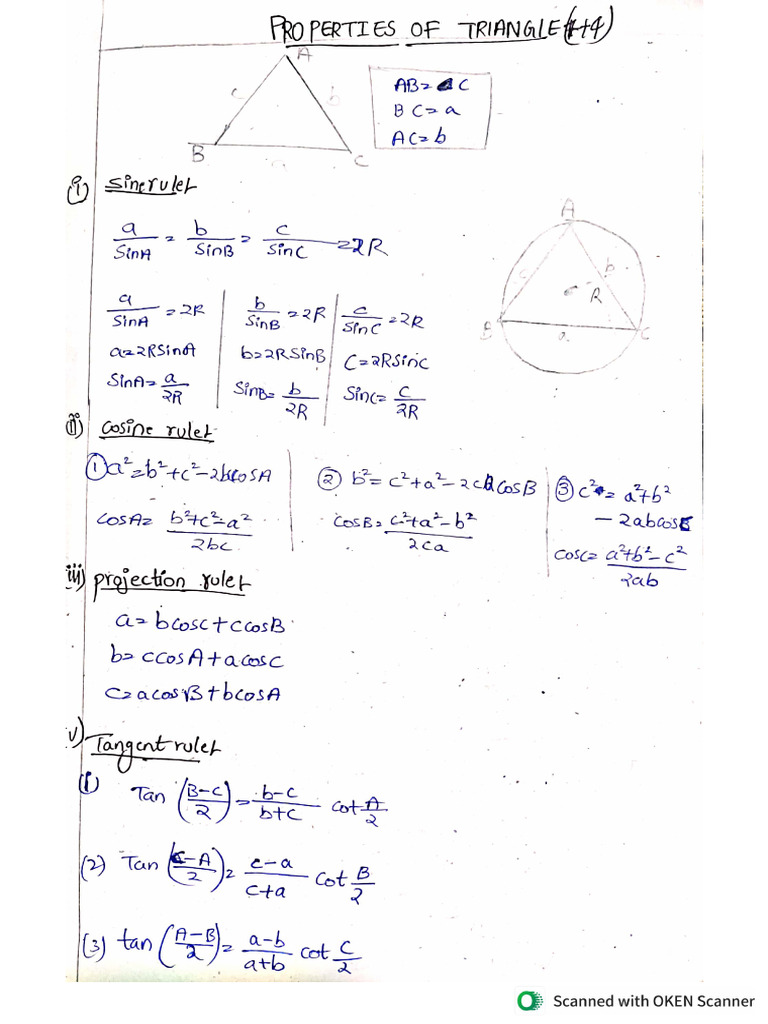 PROPERTIES OF TRIANGLE (4+4)
A
c b
B a C
AB= C
BC= a
AC= b
(i) Sine rule:
a/SinA = b/SinB = c/SinC = 2R
A
c b
R
B a C
a/SinA = 2R | b/SinB = 2R | c/SinC = 2R
a=2RSinA | b=2RSinB | C=2RSinC
SinA= a/2R | SinB= b/2R | SinC= c/2R
(ii) Cosine rule:
① a²=b²+c²-2bccosA | ② b²= c²+a²-2cacosB | ③ c²= a²+b²
-2abcosC
cosA= b²+c²-a²/2bc | cosB= c²+a²-b²/2ca | cosc= a²+b²-c²/2ab
iii) projection rule:
a= bcosc+ccosB
b= ccosA+acosc
c= acosB+bcosA
v) Tangent rule:
(1) Tan (B-C/2) = b-c/b+c cot A/2
(2) Tan (C-A/2) = c-a/c+a cot B/2
(3) tan (A-B/2) = a-b/a+b cot C/2
Scanned with OKEN Scanner